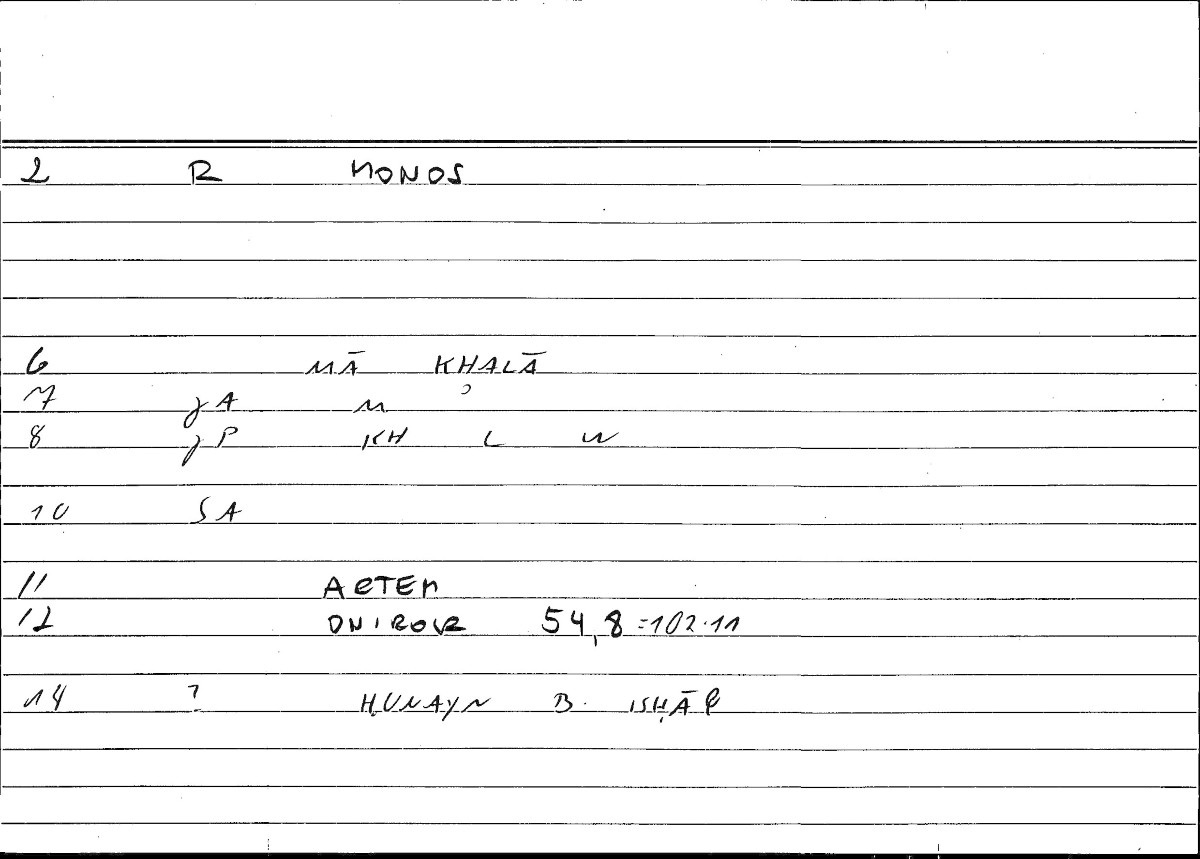 2 R MONOS
6 MĀ KHALĀ
7 jA M
8 jP KH L W
10 SA
11 ARTEM
12 ONIROCR 54,8 =102.11
14 ? ḤUNAYN B. ISḤĀQ